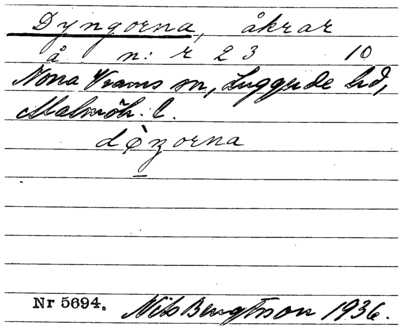 Dyngorna, åkrar
å n: r 23 10
Norra Vrams sn, Luggude hd,
Malmöh. l.
Nr 5694. Nils Bengtsson 1936.